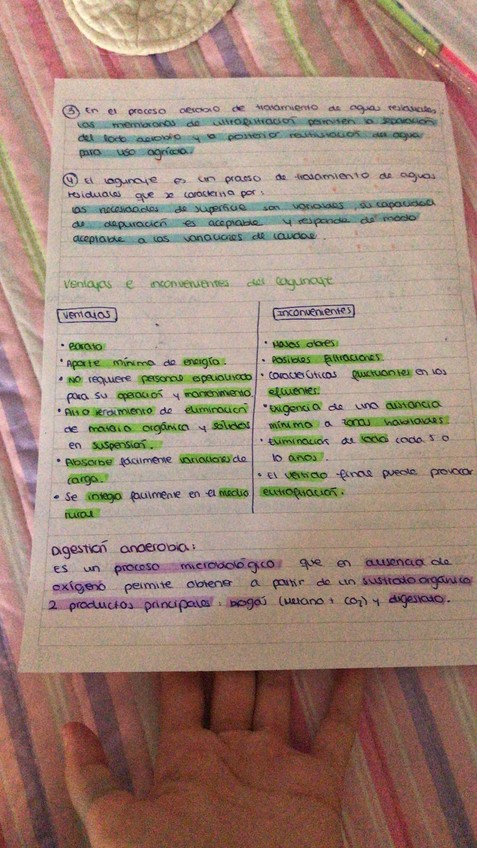 ③ En el proceso aerobio de tratamiento de aguas residuales:
las membranas de ultrafiltración permiten la separación
del lodo aerobio y la posterior reutilización del agua
para uso agrícola.
④ El lagunaje es un proceso de tratamiento de aguas
residuales que se caracteriza por:
las necesidades de superficie son variables, su capacidad
de depuración es aceptable y responde de modo
aceptable a las variaciones de caudal.
Ventajas e inconvenientes del lagunaje
Ventajas
• Barato
• Aporte mínimo de energía.
• No requiere personal especializado
para su operación y mantenimiento.
• Alto rendimiento de eliminación
de materia orgánica y sólidos
en suspensión.
• Absorbe fácilmente variaciones de
carga.
• Se integra fácilmente en el medio
rural
Inconvenientes
• Malos olores
• Posibles filtraciones
• Características fluctuantes en los
efluentes.
• Exigencia de una distancia
mínima a zonas habitables
• Eliminación de lodo cada 5 o
10 años.
• El vertido final puede provocar
eutrofización.
Digestión anaerobia:
Es un proceso microbiológico que en ausencia de
oxígeno permite obtener a partir de un sustrato orgánico
2 productos principales: biogás (Metano + CO₂) y digestato.